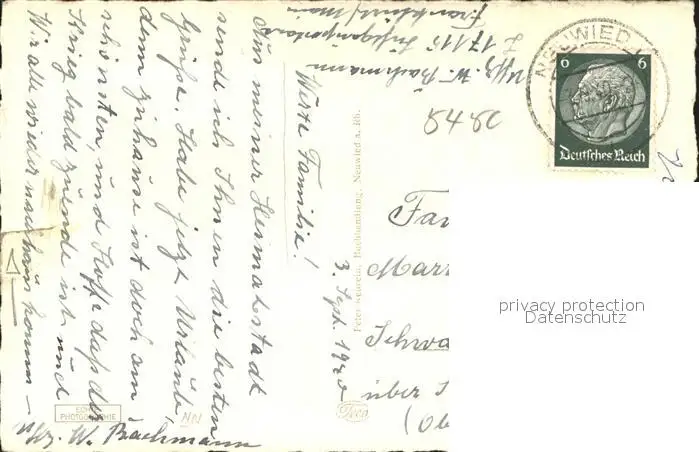 Uffz. W. Bachmann
Frankfurt/Main
3. Sept. 1940
Werte Familie!
Aus meiner Heimatstadt
sende ich Ihnen die besten
Grüße. Habe jetzt Urlaub,
denn zuhause ist doch am
schönsten, und hoffe daß der
Krieg bald zuende ist und
Wir alle wieder nach haus kommen –
Uffz. W. Bachmann
ECHTE
PHOTOGRAPHIE
NN
Buchhandlung, Neuwied a. Rh.
8480
NEUWIED
6 6
Deutsches Reich
Fa
Mar
Schwa
über
(Ob
privacy protection
Datenschutz